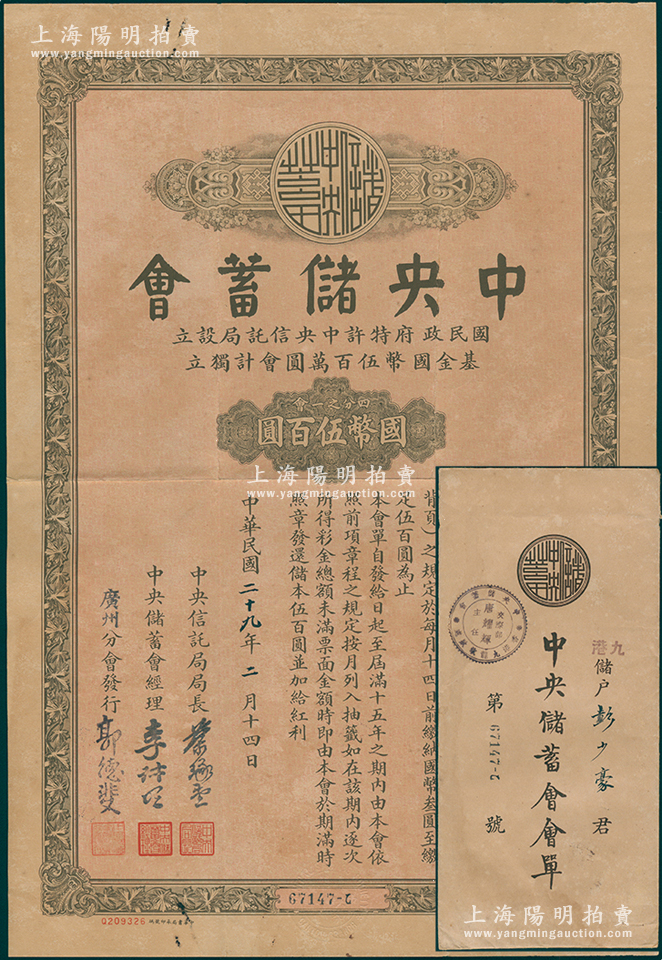 上海陽明拍賣
www.yangmingauction.com
中央儲蓄會
國民政府特許中央信託局設立
基金國幣伍百萬圓會計獨立
四分之一會
國幣伍百圓
上海陽明拍賣
www.yangmingauction.com
背頁）之規定於每月十四日前繳納國幣叁圓至繳
定伍百圓為止
本會單自發給日起至屆滿十五年之期內由本會依
照前項章程之規定按月列入抽籤如在該期內逐次
所得彩金總額未滿票面金額時即由本會於期滿時
照章發還儲本伍百圓並加給紅利
中華民國二十九年二月十四日
中央信託局局長
中央儲蓄會經理
廣州分會發行
郭德斐
67147-C
Q209326
九港
儲戶彭少豪君
中央儲蓄會會單
第67147-C號
上海陽明拍賣
www.yangmingauction.com